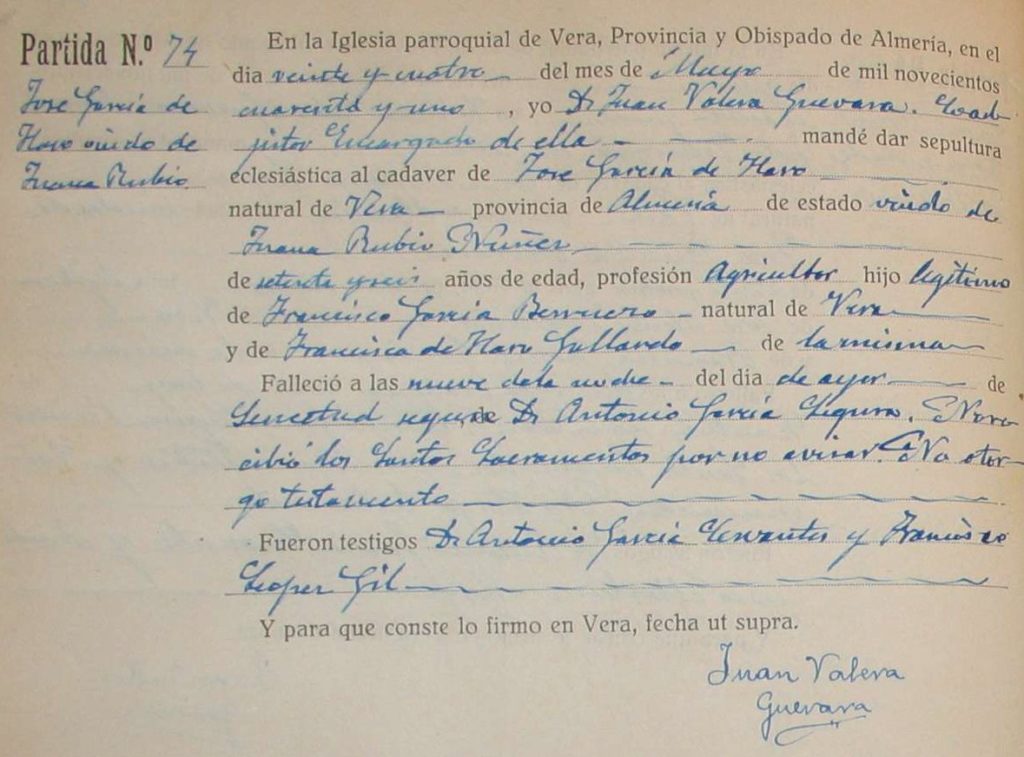 Partida N.º 74
José García de
Haro viudo de
Juana Rubio
En la Iglesia parroquial de Vera, Provincia y Obispado de Almería, en el
dia veinte y cuatro del mes de Mayo de mil novecientos
cuarenta y uno, yo D. Juan Valera Guevara. Coad-
jutor Encargado de ella mandé dar sepultura
eclesiástica al cadaver de Jose García de Haro
natural de Vera provincia de Almería de estado viudo de
Juana Rubio Núñez
de setenta y seis años de edad, profesión Agricultor hijo legítimo
de Francisco García Berruezo natural de Vera
y de Francisca de Haro Gallardo de la misma
Falleció a las nueve de la noche del dia de ayer de
Senectud segun de D. Antonio García Segura. No re-
cibió los Santos Sacramentos por no avisar. No otor-
go testamento
Fueron testigos D. Antonio García Cervantes y Francisco
Lopez Gil
Y para que conste lo firmo en Vera, fecha ut supra.
Juan Valera
Guevara